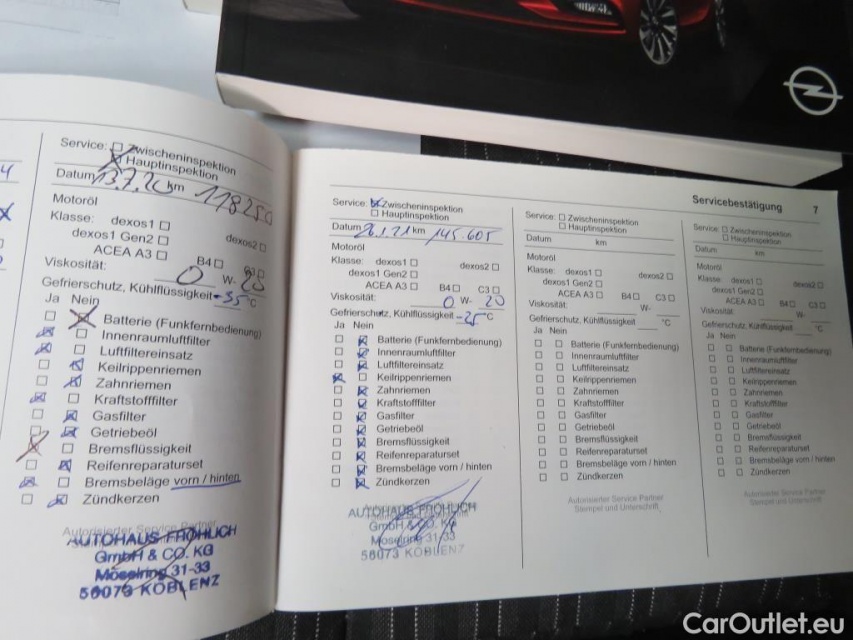 Service: Zwischeninspektion
Hauptinspektion
Datum 13.7.20 km 118250
Motoröl
Klasse: dexos1
dexos1 Gen2 dexos2
ACEA A3 B4 C3
Viskosität: 0 W- 20
Gefrierschutz, Kühlflüssigkeit -35 °C
Ja Nein
Batterie (Funkfernbedienung)
Innenraumluftfilter
Luftfiltereinsatz
Keilrippenriemen
Zahnriemen
Kraftstofffilter
Gasfilter
Getriebeöl
Bremsflüssigkeit
Reifenreparaturset
Bremsbeläge vorn / hinten
Zündkerzen
Autorisierter Service Partner
AUTOHAUS FRÖHLICH
GmbH & CO. KG
Moselring 31-33
56073 KOBLENZ
Servicebestätigung 7
Service: Zwischeninspektion
Hauptinspektion
Datum 26.1.21 km 145.605
Motoröl
Klasse: dexos1 dexos2
dexos1 Gen2
ACEA A3 B4 C3
Viskosität: 0 W- 20
Gefrierschutz, Kühlflüssigkeit -25 °C
Ja Nein
Batterie (Funkfernbedienung)
Innenraumluftfilter
Luftfiltereinsatz
Keilrippenriemen
Zahnriemen
Kraftstofffilter
Gasfilter
Getriebeöl
Bremsflüssigkeit
Reifenreparaturset
Bremsbeläge vorn / hinten
Zündkerzen
AUTOHAUS FRÖHLICH
GmbH & CO. KG
Moselring 31-33
56073 KOBLENZ
Service: Zwischeninspektion
Hauptinspektion
Datum km
Motoröl
Klasse: dexos1
dexos1 Gen2 dexos2
ACEA A3 B4 C3
Viskosität: W-
Gefrierschutz, Kühlflüssigkeit °C
Ja Nein
Batterie (Funkfernbedienung)
Innenraumluftfilter
Luftfiltereinsatz
Keilrippenriemen
Zahnriemen
Kraftstofffilter
Gasfilter
Getriebeöl
Bremsflüssigkeit
Reifenreparaturset
Bremsbeläge vorn / hinten
Zündkerzen
Autorisierter Service Partner
Stempel und Unterschrift
Service: Zwischeninspektion
Hauptinspektion
Datum km
Motoröl
Klasse: dexos1
dexos1 Gen2 dexos2
ACEA A3 B4 C3
Viskosität: W-
Gefrierschutz, Kühlflüssigkeit °C
Ja Nein
Batterie (Funkfernbedienung)
Innenraumluftfilter
Luftfiltereinsatz
Keilrippenriemen
Zahnriemen
Kraftstofffilter
Gasfilter
Getriebeöl
Bremsflüssigkeit
Reifenreparaturset
Bremsbeläge vorn / hinten
Zündkerzen
Autorisierter Service Partner
Stempel und Unterschrift
CarOutlet.eu